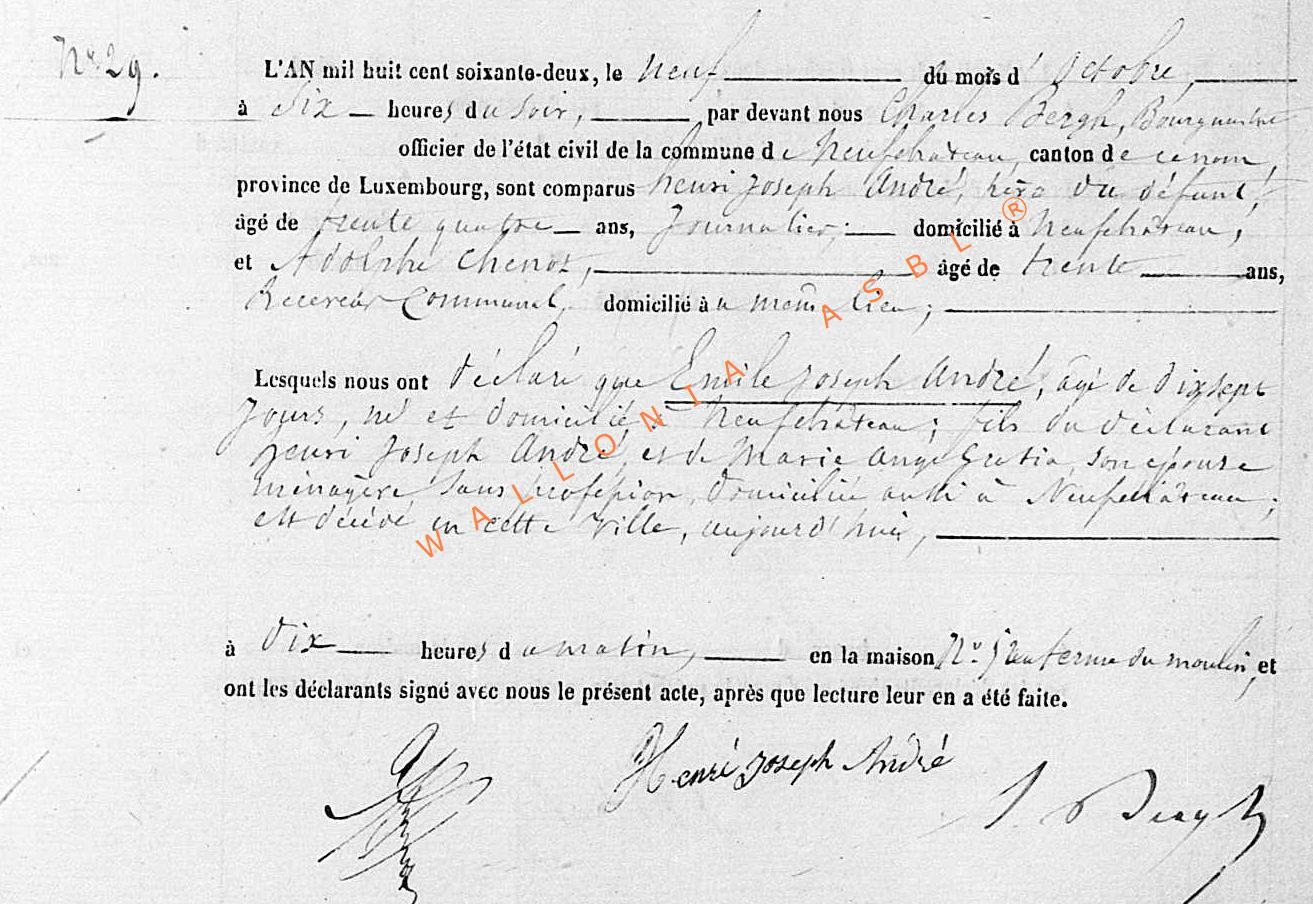 Nº 29.
L'AN mil huit cent soixante-deux, le neuf du mois d'Octobre,
à Six heures du soir, par devant nous Charles Bergh, Bourgmestre
officier de l'état civil de la commune de Neufchâteau, canton de ce nom,
province de Luxembourg, sont comparus henri Joseph André, père du défunt,
âgé de trente quatre ans, Journalier; domicilié à Neufchâteau;
et Adolphe Chenot, âgé de trente ans,
Receveur Communal, domicilié au même lieu;
Lesquels nous ont déclaré que Emile Joseph André, agé de dix sept
Jours, né et domicilié à Neufchâteau; fils du déclarant
henri Joseph André, et de Marie Ange Gratia, son épouse
ménagère sans profession, domiciliée aussi à Neufchâteau;
est décédé en cette Ville, aujourd'hui,
à Dix heures du matin, en la maison Nº 5 du moulin, et
ont les déclarants signé avec nous le présent acte, après que lecture leur en a été faite.
Henri Joseph André
Bergh
WALLONIA ASBL ®